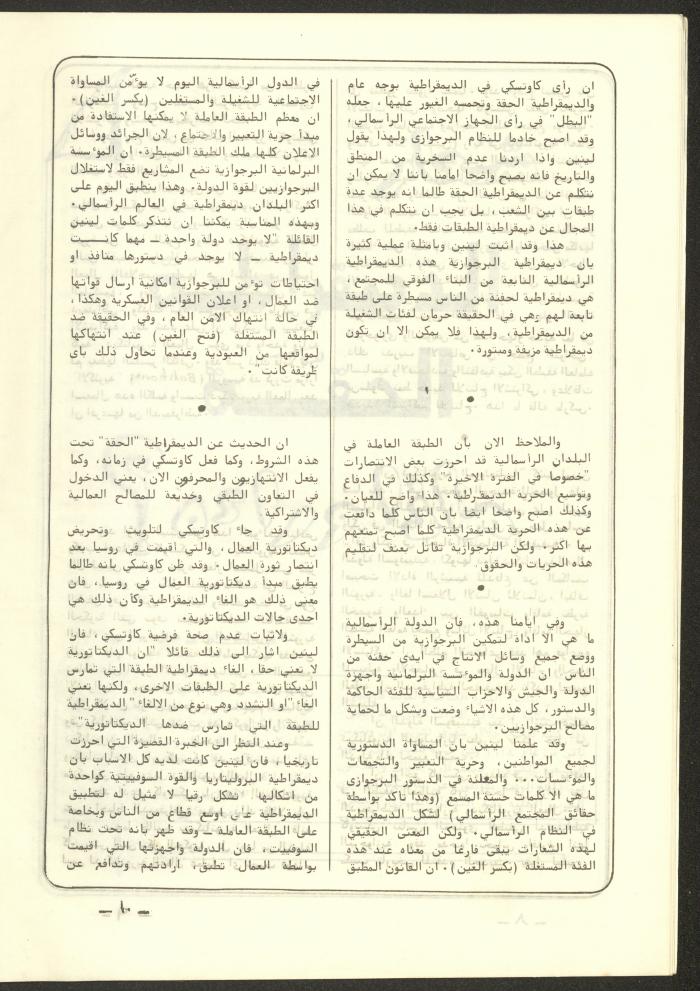 ان رأى كاوتسكي في الديمقراطية بوجه عام
والديمقراطية الحقة وتحمسه الغيور عليها، جعله
"البطل" في رأى الجهاز الاجتماعي الرأسمالي،
وقد اصبح خادما للنظام البرجوازى ولهذا يقول
لينين واذا اردنا عدم السخرية من المنطق
والتاريخ فانه يصبح واضحا امامنا باننا لا يمكن ان
نتكلم عن الديمقراطية الحقة طالما انه يوجد عدة
طبقات بين الشعب، بل يجب ان نتكلم في هذا
المجال عن ديمقراطية الطبقات فقط.
هذا وقد اثبت لينين وبامثلة عملية كثيرة
بان ديمقراطية البرجوازية هذه الديمقراطية
الرأسمالية التابعة من البناء الفوقي للمجتمع،
هي ديمقراطية لحفنة من الناس مسيطرة على طبقة
تابعة لهم وهي في الحقيقة حرمان لفئات الشغيلة
من الديمقراطية، ولهذا فلا يمكن الا ان تكون
ديمقراطية مزيفة ومبتورة.
والملاحظ الان بأن الطبقة العاملة في
البلدان الرأسمالية قد احرزت بعض الانتصارات
"خصوصا في الفترة الاخيرة" وكذلك في الدفاع
وتوسيع الحرية الديمقراطية. هذا واضح للعيان.
وكذلك اصبح واضحا ايضا بان الناس كلما دافعت
عن هذه الحرية الديمقراطية كلما اصبح تمتعهم
بها اكثر. ولكن البرجوازية تقاتل بعنف لتقليم
هذه الحريات والحقوق.
وفي أيامنا هذه، فان الدولة الرأسمالية
ما هي الا اداة لتمكين البرجوازية من السيطرة
ووضع جميع وسائل الانتاج في ايدى حفنة من
الناس ان الدولة والموءسسة البرلمانية واجهزة
الدولة والجيش والاحزاب السياسية للفئة الحاكمة
والدستور، كل هذه الاشياء وضعت وبشكل ما لحماية
مصالح البرجوازيين.
وقد علمنا لينين بأن المساواة الدستورية
لجميع المواطنين، وحرية التعبير والتجمعات
والموءسسات... والمعلنة في الدستور البرجوازى
ما هي الا كلمات حسنة المسمع (وهذا تأكد بواسطة
حقائق المجتمع الرأسمالي) لشكل الديمقراطية
في النظام الرأسمالي. ولكن المعنى الحقيقي
لهذه الشعارات يبقى فارغا من معناه عند هذه
الفئة المستغلة (بكسر الغين). ان القانون المطبق
في الدول الرأسمالية اليوم لا يوءمن المساواة
الاجتماعية للشغيلة والمستغلين (بكسر الغين).
ان معظم الطبقة العاملة لا يمكنها الاستفادة من
مبدأ حرية التعبير والاجتماع، لان الجرائد ووسائل
الاعلان كلها ملك الطبقة المسيطرة. ان الموءسسة
البرلمانية البرجوازية تضع المشاريع فقط لاستغلال
البرجوازيين لقوة الدولة. وهذا ينطبق اليوم على
اكثر البلدان ديمقراطية في العالم الرأسمالي.
وبهذه المناسبة يمكننا ان نتذكر كلمات لينين
القائلة "لا يوجد دولة واحدة ـ مهما كانــــت
ديمقراطية ـ لا يوجد في دستورها منافذ او
احتياطات توءمن للبرجوازية امكانية ارسال قواتها
ضد العمال، او اعلان القوانين العسكرية وهكذا،
في حالة انتهاك الامن العام، وفي الحقيقة ضد
الطبقة المستغلة (فتح الغين) عند انتهاكها
لمواقعها من العبودية وعندما تحاول ذلك باى
طريقة كانت".
ان الحديث عن الديمقراطية "الحقة" تحت
هذه الشروط، وكما فعل كاوتسكي في زمانه، وكما
يفعل الانتهازيون والمحرفون الان، يعني الدخول
في التعاون الطبقي وخديعة للمصالح العمالية
والاشتراكية
وقد جاء كاوتسكي لتلويث وتحريض
ديكتاتورية العمال، والتي أقيمت في روسيا بعد
انتصار ثورة العمال. وقد ظن كاوتسكي بانه طالما
يطبق مبدأ ديكتاتورية العمال في روسيا، فان
معنى ذلك هو الغاء الديمقراطية وكأن ذلك هي
احدى حالات الديكتاتورية.
ولاثبات عدم صحة فرضية كاوتسكي، فان
لينين اشار الى ذلك قائلا "ان الديكتاتورية
لا تعني حقا، الغاء ديمقراطية الطبقة التي تمارس
الديكتاتورية على الطبقات الاخرى، ولكنها تعني
الغاء "او التشدد وهي نوع من الالغاء" الديمقراطية
للطبقة التي تمارس ضدها الديكتاتورية".
وعند النظر الى الخبرة القصيرة التي احرزت
تاريخيا، فان لينين كانت لديه كل الاسباب بأن
ديمقراطية البروليتاريا والقوة السوفييتية كواحدة
من اشكالها تشكل رقيا لا مثيل له لتطبيق
الديمقراطية على اوسع قطاع من الناس وبخاصة
على الطبقة العاملة ـ وقد ظهر بانه تحت نظام
السوفييت، فان الدولة واجهزتها التي اقيمت
بواسطة العمال تطبق، ارادتهم وتدافع عن
ـ ١٠ ـ